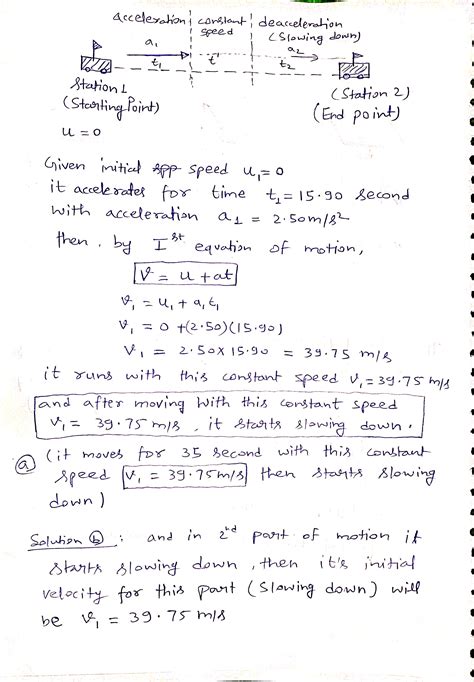 acceleration constant speed deacceleration (Slowing down)
a₁ a₂
t₁ t' t₂
Station 1 (Station 2)
(Starting Point) (End point)
u = 0
Given initial spp speed u₁=0
it accelerates for time t₁=15.90 second
with acceleration a₁ = 2.50m/s²
then, by Iˢᵗ equation of motion,
V = u + at
V₁ = u₁ + a₁t₁
V₁ = 0 +(2.50)(15.90)
V₁ = 2.50x 15.90 = 39.75 m/s
it runs with this constant speed V₁=39.75 m/s
and after moving with this constant speed
V₁ = 39.75 m/s, it starts slowing down.
(a) (it moves for 35 second with this constant
speed V₁ = 39.75m/s then starts slowing
down)
Solution (b) : and in 2ⁿᵈ part of motion it
starts slowing down, then it's initial
velocity for this part (slowing down) will
be V₁ = 39.75 m/s